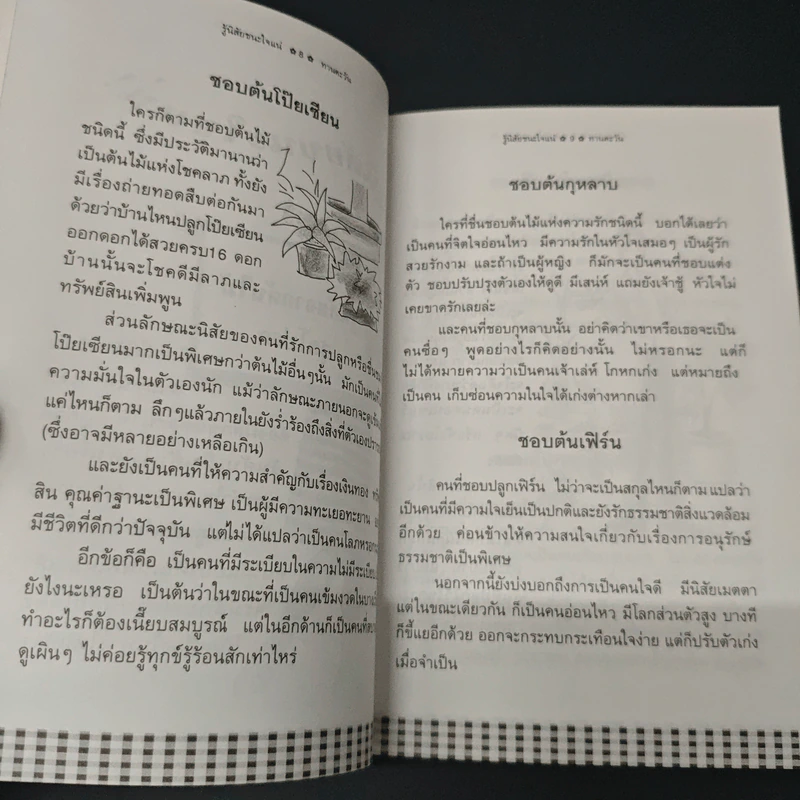 รู้นิสัยชนะใจแน่ ✿ 8 ✿ ทานตะวัน
ชอบต้นโป๊ยเซียน
ใครก็ตามที่ชอบต้นไม้
ชนิดนี้ ซึ่งมีประวัติมานานว่า
เป็นต้นไม้แห่งโชคลาภ ทั้งยัง
มีเรื่องถ่ายทอดสืบต่อกันมา
ด้วยว่าบ้านไหนปลูกโป๊ยเซียน
ออกดอกได้สวยครบ16 ดอก
บ้านนั้นจะโชคดีมีลาภและ
ทรัพย์สินเพิ่มพูน
ส่วนลักษณะนิสัยของคนที่รักการปลูกหรือชื่นชม
โป๊ยเซียนมากเป็นพิเศษกว่าต้นไม้อื่นๆนั้น มักเป็นคนที่
ความมั่นใจในตัวเองนัก แม้ว่าลักษณะภายนอกจะดูเข้ม
แค่ไหนก็ตาม ลึกๆแล้วภายในยังร่ำร้องถึงสิ่งที่ตัวเองปรารถ
(ซึ่งอาจมีหลายอย่างเหลือเกิน)
และยังเป็นคนที่ให้ความสำคัญกับเรื่องเงินทอง
สิน คุณค่าฐานะเป็นพิเศษ เป็นผู้มีความทะเยอทะยาน
มีชีวิตที่ดีกว่าปัจจุบัน แต่ไม่ได้แปลว่าเป็นคนโลภหรอก
อีกข้อก็คือ เป็นคนที่มีระเบียบในความไม่มีระเบียบ
ยังไงนะเหรอ เป็นต้นว่าในขณะที่เป็นคนเข้มงวดในบาง
ทำอะไรก็ต้องเนี๊ยบสมบูรณ์ แต่ในอีกด้านก็เป็นคนที่
ดูเผินๆ ไม่ค่อยรู้ทุกข์รู้ร้อนสักเท่าไหร่
รู้นิสัยชนะใจแน่ ✿ 9 ✿ ทานตะวัน
ชอบต้นกุหลาบ
ใครที่ชื่นชอบต้นไม้แห่งความรักชนิดนี้ บอกได้เลยว่า
เป็นคนที่จิตใจอ่อนไหว มีความรักในหัวใจเสมอๆ เป็นผู้รัก
สวยรักงาม และถ้าเป็นผู้หญิง ก็มักจะเป็นคนที่ชอบแต่ง
ตัว ชอบปรับปรุงตัวเองให้ดูดี มีเสน่ห์ แถมยังเจ้าชู้ หัวใจไม่
เคยขาดรักเลยล่ะ
และคนที่ชอบกุหลาบนั้น อย่าคิดว่าเขาหรือเธอจะเป็น
คนซื่อๆ พูดอย่างไรก็คิดอย่างนั้น ไม่หรอกนะ แต่ก็
ไม่ได้หมายความว่าเป็นคนเจ้าเล่ห์ โกหกเก่ง แต่หมายถึง
เป็นคน เก็บซ่อนความในใจได้เก่งต่างหากเล่า
ชอบต้นเฟิร์น
คนที่ชอบปลูกเฟิร์น ไม่ว่าจะเป็นสกุลไหนก็ตาม แปลว่า
เป็นคนที่มีความใจเย็นเป็นปกติและยังรักธรรมชาติสิ่งแวดล้อม
อีกด้วย ค่อนข้างให้ความสนใจเกี่ยวกับเรื่องการอนุรักษ์
ธรรมชาติเป็นพิเศษ
นอกจากนี้ยังบ่งบอกถึงการเป็นคนใจดี มีนิสัยเมตตา
แต่ในขณะเดียวกัน ก็เป็นคนอ่อนไหว มีโลกส่วนตัวสูง บางที
ก็ขี้แยอีกด้วย ออกจะกระทบกระเทือนใจง่าย แต่ก็ปรับตัวเก่ง
เมื่อจำเป็น